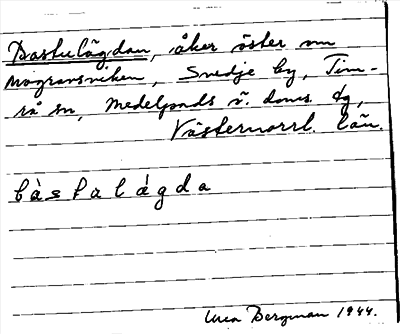 Bastulägdan, åker öster om
Mogransviken, Svedje by, Tim-
rå sn, Medelpads ö. doms. dg,
Västernorrl. län.
bàstalágda
Bergman 1944.